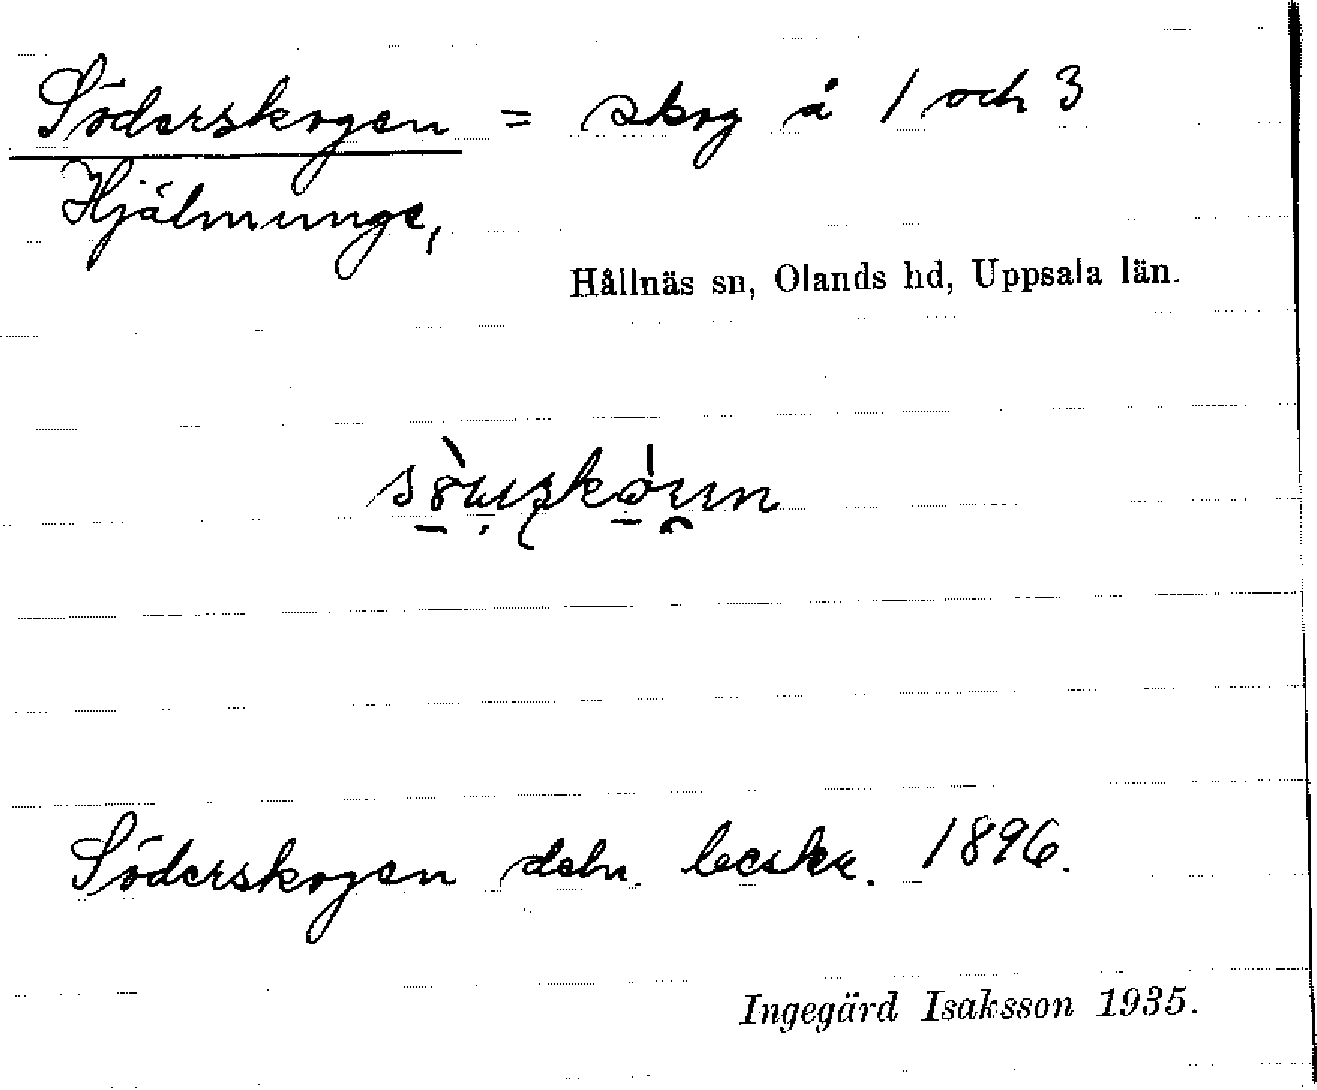 Söderskogen = skog å 1 och 3
Hjälmunge,
Hållnäs sn, Olands hd, Uppsala län.
Söderskogen deln. beskr. 1896.
Ingegärd Isaksson 1935.